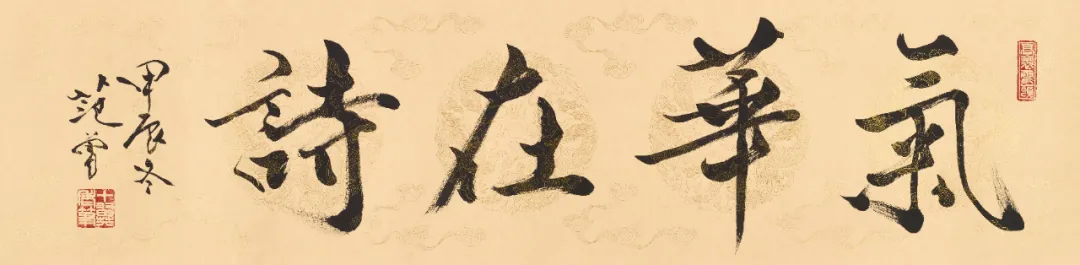 氣華在詩
甲辰冬
范曾